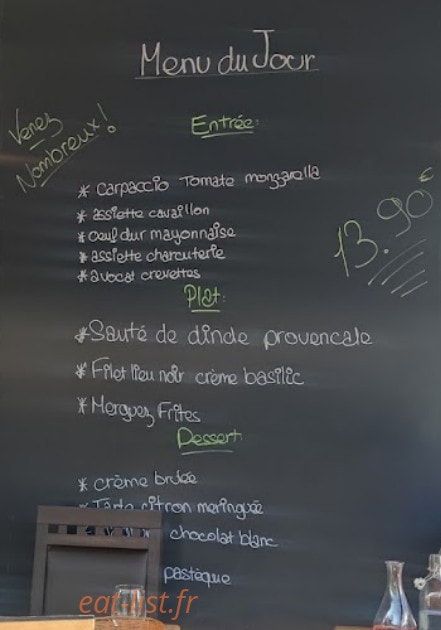 Menu du Jour
Venez
Nombreux!
Entrée:
* Carpaccio Tomate mozzarella
* assiette cavaillon
* œuf dur mayonnaise
* assiette charcuterie
* avocat crevettes
13.90€
Plat:
* Sauté de dinde provencale
* Filet lieu noir crème basilic
* Merguez Frites
Dessert:
* crème brulée
* Tarte citron meringuée
chocolat blanc
pastèque
eat-list.fr